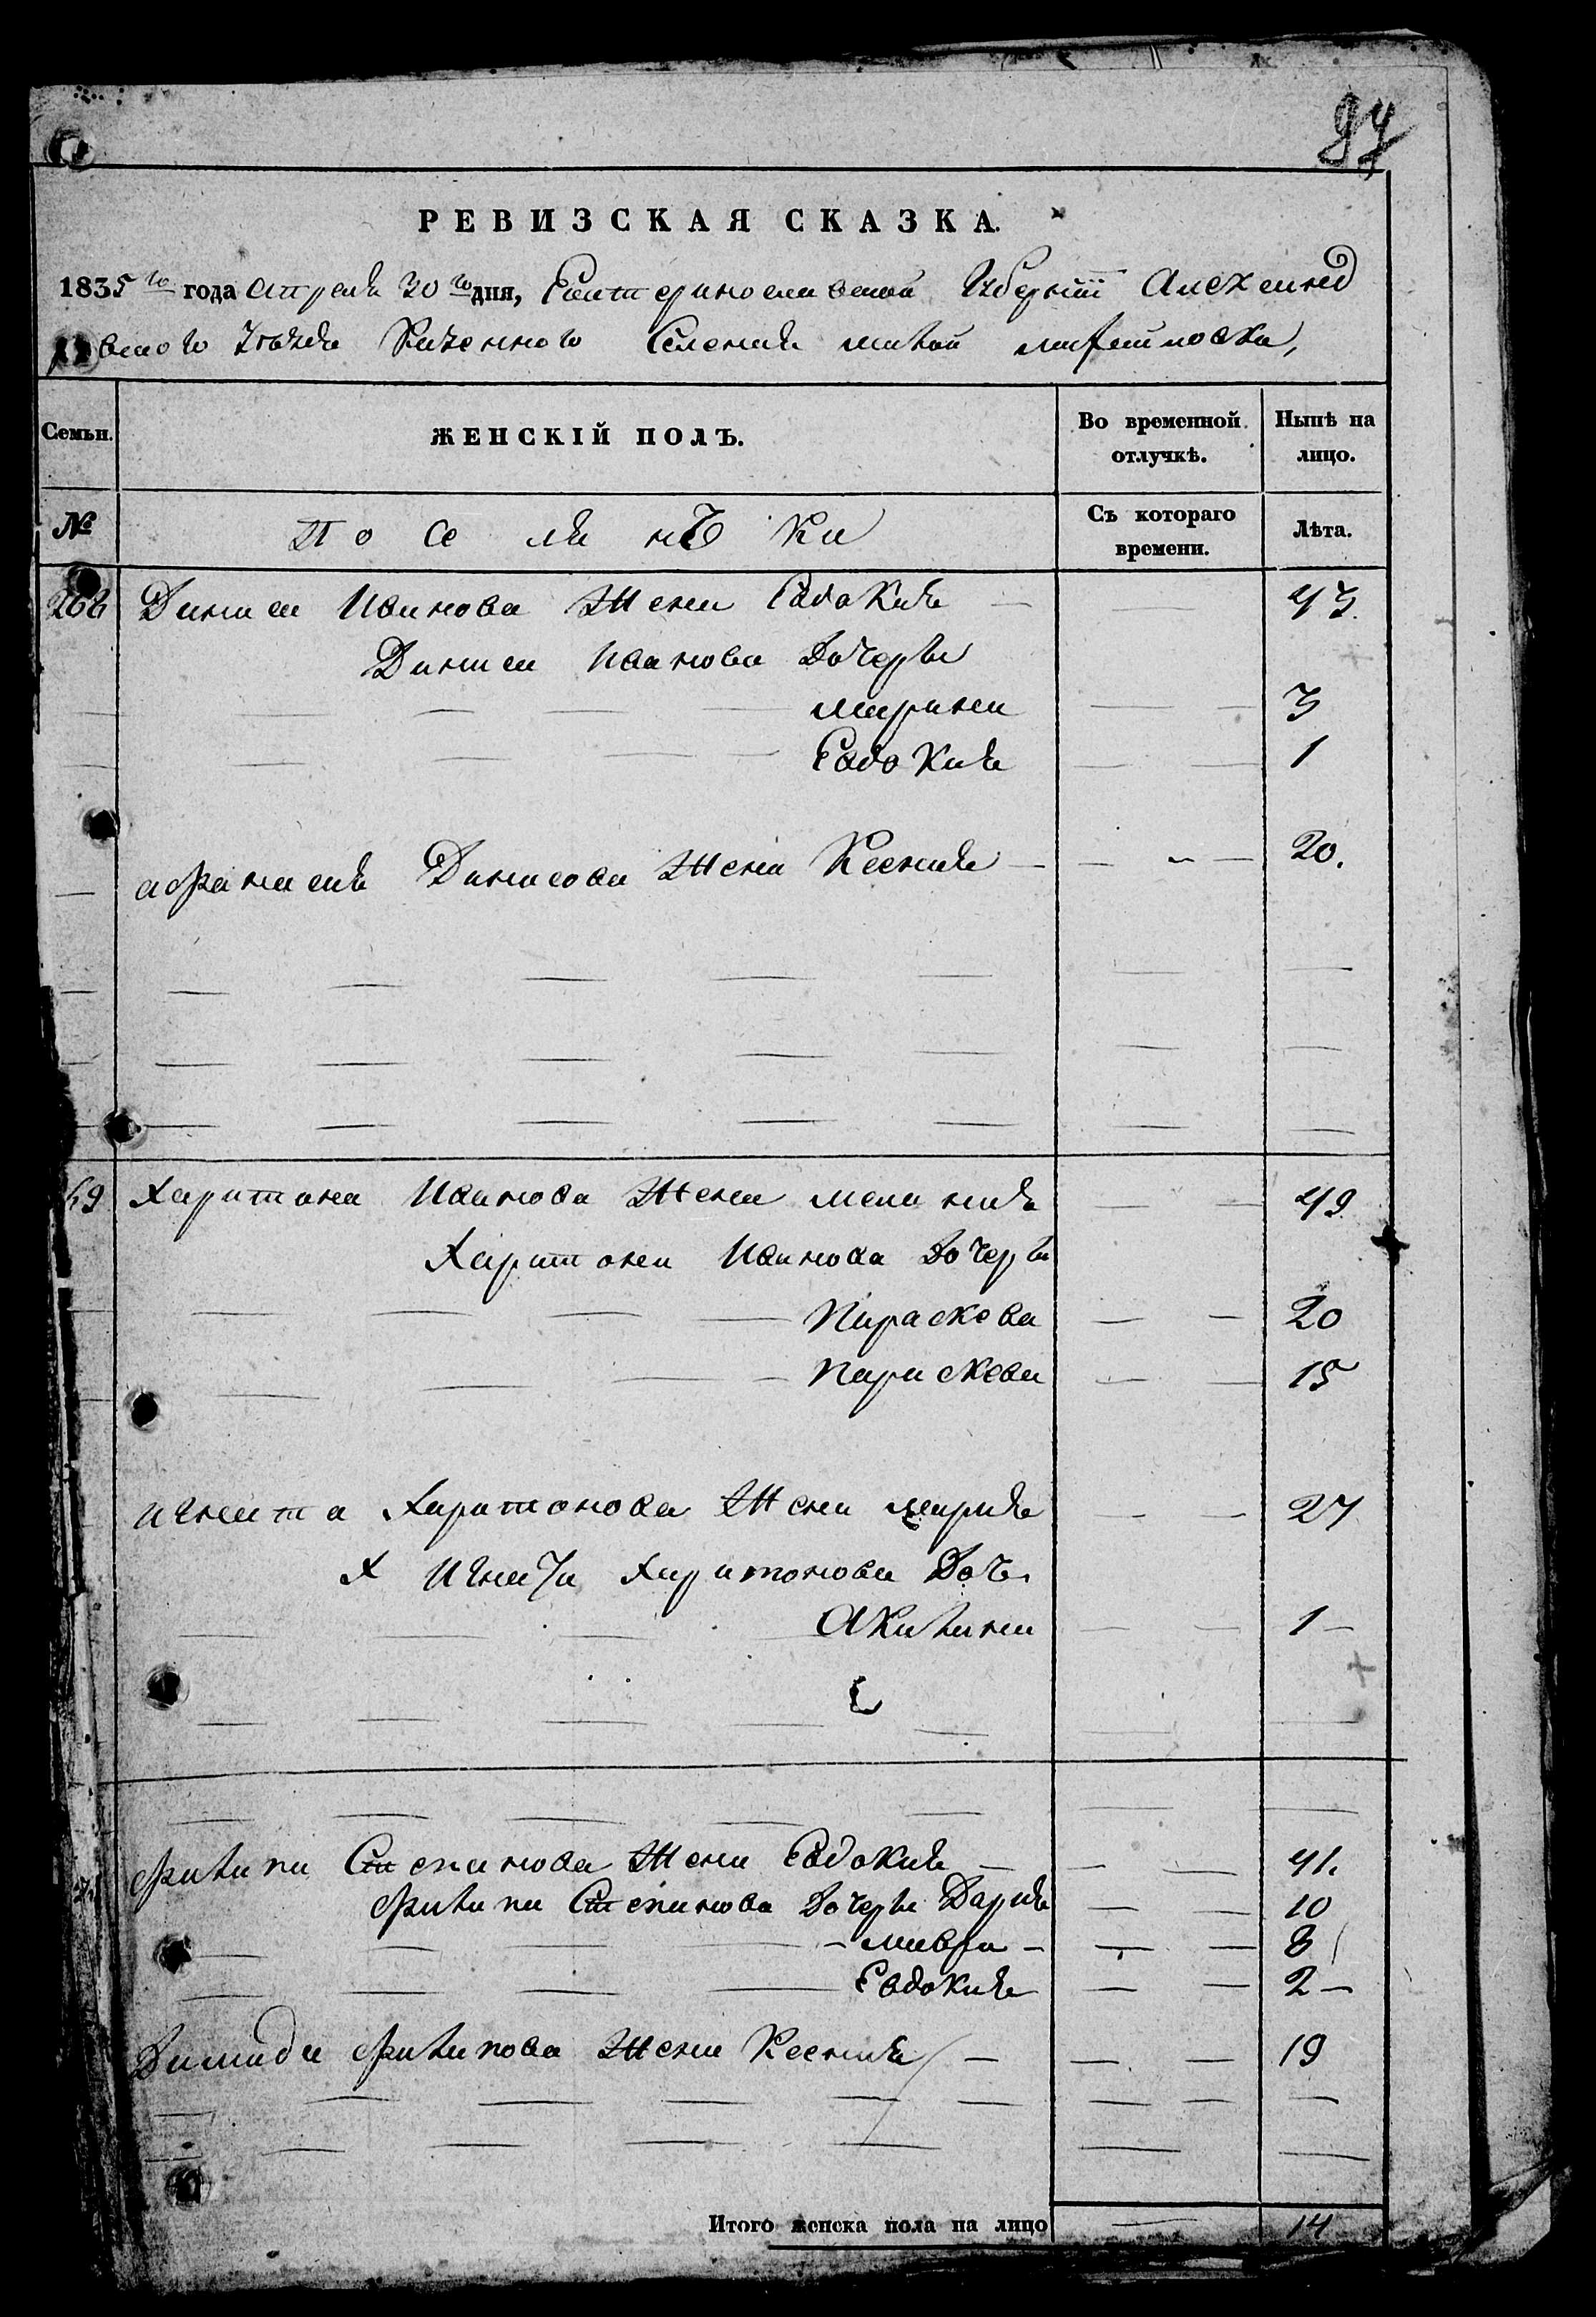 РЕВИЗСКАЯ СКАЗКА.
1835 го года апреля 30 го дня, Екатеринославской Губернии Александ
вского уезда Казенного Селения малой
Семьи. ЖЕНСКІЙ ПОЛЪ. Во временной отлучкѣ. Нынѣ на лицо.
№ Поселянъки Съ котораго времени. Лѣта.
268 Даниила Иванова жена Евдокия 43
Даниила Иванова дочери
Марина 3
Евдокия 1
Афанасия Данилова жена Ксения 20.
69 Харитона Иванова жена Мелания 49
Харитона Иванова дочери
Параскева 20
Параскева 15
Игната Харитонова жена Мария 27
Х Игната Харитонова дочь
Акилина 1
Филипа Степанова жена Евдокия 41.
Филипа Степанова дочери Дария 10
Мавра 8
Евдокия 2
Филипова жена Ксения 19
Итого женска пола на лицо 14